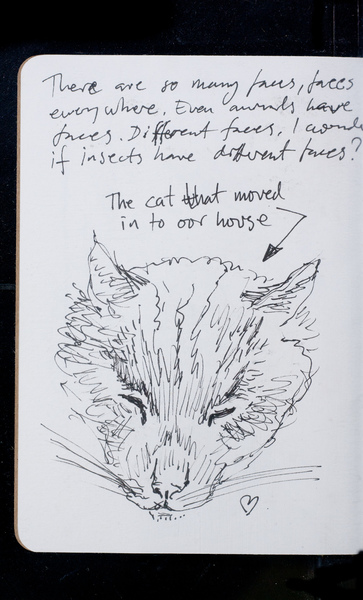 There are so many faces, faces
everywhere. Even animals have
faces. Different faces. I wonder
if insects have different faces?
The cat that moved
in to our house